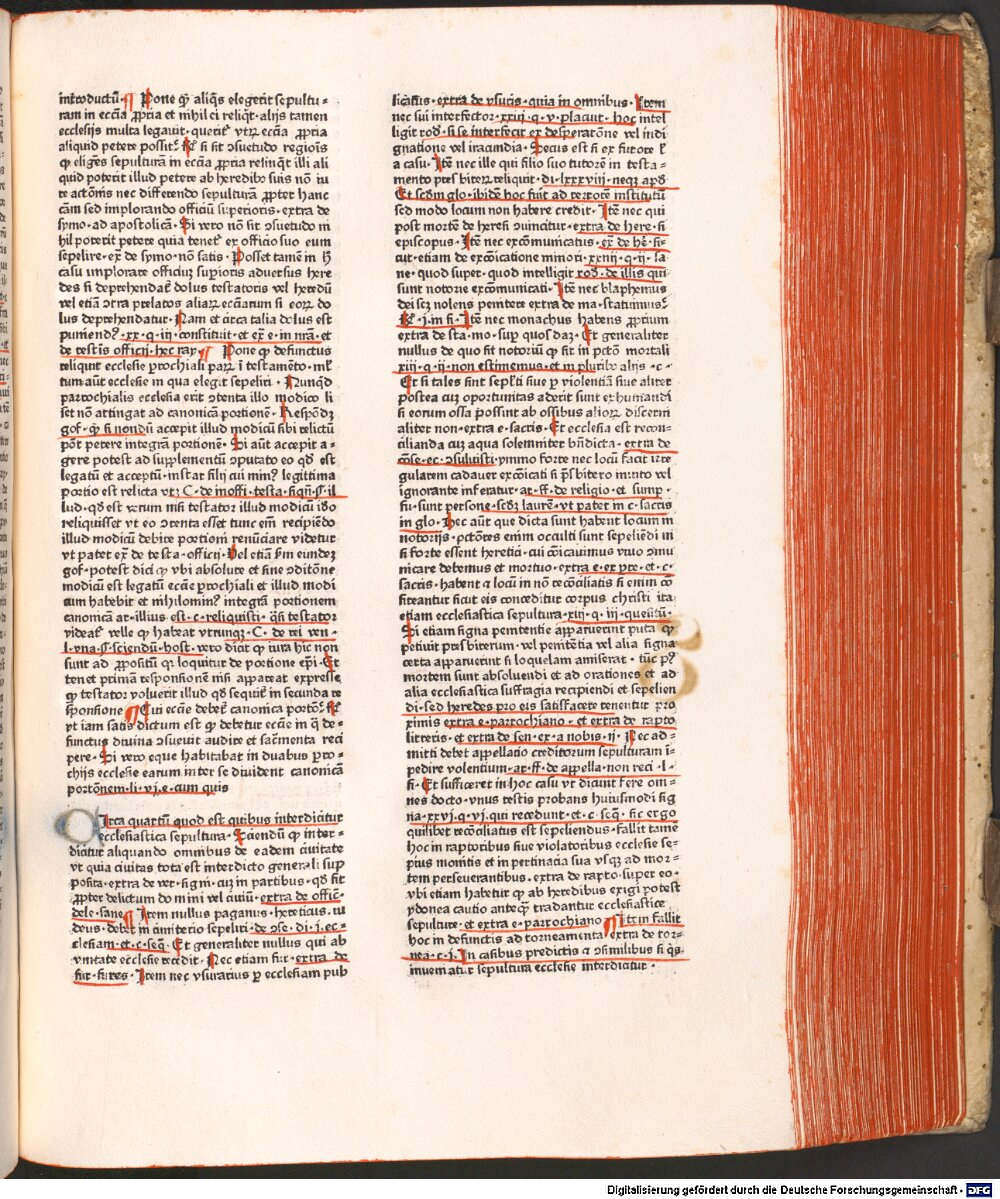 introductū. ¶ Pone ꝙ aliq̄s elegerit sepultu⸗
ram in ecc̄ia ꝓpria et nihil ei reliq̄t alijs tamen
ecclesijs multa legauit. querit̄ vtꝝ ecc̄ia ꝓpria
aliquid petere possit. R̄ si sit ꝯsuetudo regiōis
ꝙ eligēs sepulturā in ecc̄ia ꝓpria relinq̄t illi ali
quid poterit illud petere ab heredibꝰ suis nō iu
re actōnis nec differendo sepulturā ꝓpter hanc
cām sed implorando officiū superioris. extra de
symo. ad apostolicā. Si vero nō sit ꝯsuetudo ni
hil poterit petere quia tenet̄ ex officio suo eum
sepelire. ex̄ de symo. nō satis. Posset tamē in h̄
casu implorare officiū suꝑioris aduersus here
des si deprehendat̄ dolus testatoris vel heredū
vel etiā ꝯtra prelatos aliaꝝ ecc̄iarum si eoꝝ do
lus deprehendatur. Nam et circa talia dolus est
puniendꝰ. xx. q. iij. constituit. et ex̄ e. in nr̄a. et
de testīs officij. hec ray. ¶ Pone ꝙ defunctus
reliquit ecclesie ꝑrochiali parū ī testamēto. ml̄
tum aūt ecclesie in qua elegit sepeliri. Nunqd
parrochialis ecclesia erit ꝯtenta illo modico li
set nō attingat ad canonicā portionē. Respōdꝫ
gof. ꝙ si nondū accepit illud modicū sibi relictū
pōt petere integrā portionē. Si aūt accepit a⸗
gere potest ad supplementū ꝯputato eo qd est
legatū et acceptū. instar filij cui minꝰ legittima
portio est relicta vt. C. de inoffi. testa. si qn̄. §. il
lud. qd est verum nisi testator illud modicū iō
reliquisset vt eo ꝯtenta esset tunc em̄ recipiēdo
illud modicū debite portioni renūciare videtur
vt patet ex̄ de testa. officij. Vel etiā ẜm eundeꝫ
gof. potest dici ꝙ vbi absolute et sine ꝯditōne
modicū est legatū ecc̄ie ꝑrochiali et illud modi
cum habebit et nihilominꝰ integrā portionem
canonicā ar. illius est. c. reliquisti. qn̄ testator
videat̄ velle ꝙ habeat vtrunqꝫ. C. de rei ven.
l. vna. §. sciendū. host. vero dicit ꝙ iura hic non
sunt ad ꝓpositū qꝛ loquitur de portione epī. Et
tenet primā responsionē nisi appareat expresse
ꝙ testator voluerit illud qd sequit̄ in secunda re
sponsione. ¶ Cui ecc̄ie debet̄ canonica portō. R̄
vt iam satis dictum est ꝙ debetur ecc̄ie in q̄ de⸗
functus diuina ꝯsueuit audire et sac̄menta reci
pere. Si vero eque habitabat in duabus ꝑro⸗
chijs ecclesie earum inter se diuident canonicā
portōnem. li. vj. e. cum quis
Circa quartū quod est quibus interdicitur
ecclesiastica sepultura. Sciendū ꝙ inter⸗
dicitur aliquando omnibus de eadem ciuitate
vt quia ciuitas tota est interdicto generali sup
posita. extra de ver. signi. cū in partibus. qd fit
ꝓpter delictum domini vel ciuiū. extra de offic̄.
dele. sane. ¶ Item nullus paganus. hereticus. iu
deus. debet in cimiterio sepeliri. de ꝯse. di. j. ec⸗
clesiam. et. c. seq̄. Et generaliter nullus qui ab
vnitate ecclesie recedit. Nec etiam fur. extra de
fur. fures. Item nec vsurarius ꝑ ecclesiam pub
licatus. extra de vsuris. quia in omnibus. Item
nec sui interfector. xxiij. q. v. placuit. Hoc intel
ligit rod. si se interfecit ex desperatōne vel indi
gnatione vel iracundia. Secus est si ex furore l̄
a casu. Itē nec ille qui filio suo tutorē in testa⸗
mento presbiterꝫ reliquit. di. lxxxviij. neqꝫ apd.
Et scdm glo. ibidē hoc fuit ad terrorē institutū
sed modo locum non habere credit. Itē nec qui
post mortē de heresi ꝯuincitur. extra de here. si
episcopus. Itē nec excōmunicatus. ex̄ de he. si⸗
cut. etiam de excōicatione minori. xxiiij. q. ij. sa
ne. quod super. quod intelligit rod. de illis qui
sunt notorie excōmunicati. Itē nec blasphemus
dei scꝫ nolens penitere extra de ma. statuimus.
R̄. j. in fi. Itē nec monachus habens ꝓprium
extra de sta. mo. suꝑ quodaꝫ. Et generaliter
nullus de quo sit notoriū ꝙ sit in pctō mortali
xiij. q. ij. non estimemus. et in pluribꝰ alijs. c.
Et si tales sint sepl̄ti siue ꝑ violentiā siue aliter
postea cuꝫ oportunitas aderit sunt exhumandi
si eorum ossa possint ab ossibus alioꝝ discerni
aliter non. extra e. sacris. Et ecclesia est recon⸗
cilianda cuꝫ aqua solemniter bn̄dicta. extra de
cōse. ec. ꝯsuluisti. ymmo forte nec locū facit irre
gularem cadauer excōicati si pr̄sbitero inuito vel
ignorante inferatur. ar. ff. de religio. et sump.
fu. sunt persone. scdꝫ laurē. vt patet in c. sacris
in glo. Hec aūt que dicta sunt habent locum in
notorijs. pctōres enim occulti sunt sepeliēdi ni
si forte essent heretici. cui cōicauimus viuo ꝯmu
nicare debemus et mortuo. extra e. ex pte. et. c.
sacris. habent ⁊ locū in nō recōciliatis si enim cō
fiteantur sicut eis conceditur corpus christi ita
etiam ecclesiastica sepultura. xiij. q. iij. questū.
Si etiam signa penitentie apparuerint puta ꝙ
petiuit presbiterum. vel penitētia vel alia signa
certa apparuerint si loquelam amiserat. tūc pꝰ
mortem sunt absoluendi et ad orationes et ad
alia ecclesiastica suffragia recipiendi et sepelien
di. sed heredes pro eis satisfacere tenentur pro
ximis extra e. parrochiano. et extra de rapto.
litteris. et extra de sen. ex. a nobis. ij. Nec ad⸗
mitti debet appellatio creditorum sepulturam ī⸗
pedire volentium. ar. ff. de appella. non reci. l.
fi. Et sufficeret in hoc casu vt dicunt fere om⸗
nes docto. vnus testis probans huiusmodi sig
na. xxvj. q. vj. qui recedunt. et. c. seq̄. sic ergo
quilibet recōciliatus est sepeliendus. fallit tamē
hoc in raptoribus siue violatoribus ecclesie se⸗
pius monitis et in pertinacia sua vsqꝫ ad mor⸗
tem perseuerantibus. extra de rapto. super eo.
vbi etiam habetur ꝙ ab heredibus exigi potest
ydonea cautio anteqꝫ tradantur ecclesiastice
sepulture. et extra e. parrochiano. ¶ Item fallit
hoc in defunctis ad torneamenta. extra de tor⸗
nea. c. j. In casibus predictis ⁊ ꝯsimilibus si q̄s.
inueniatur sepultura ecclesie interdicitur.
Digitalisierung gefördert durch die Deutsche Forschungsgemeinschaft - DFG